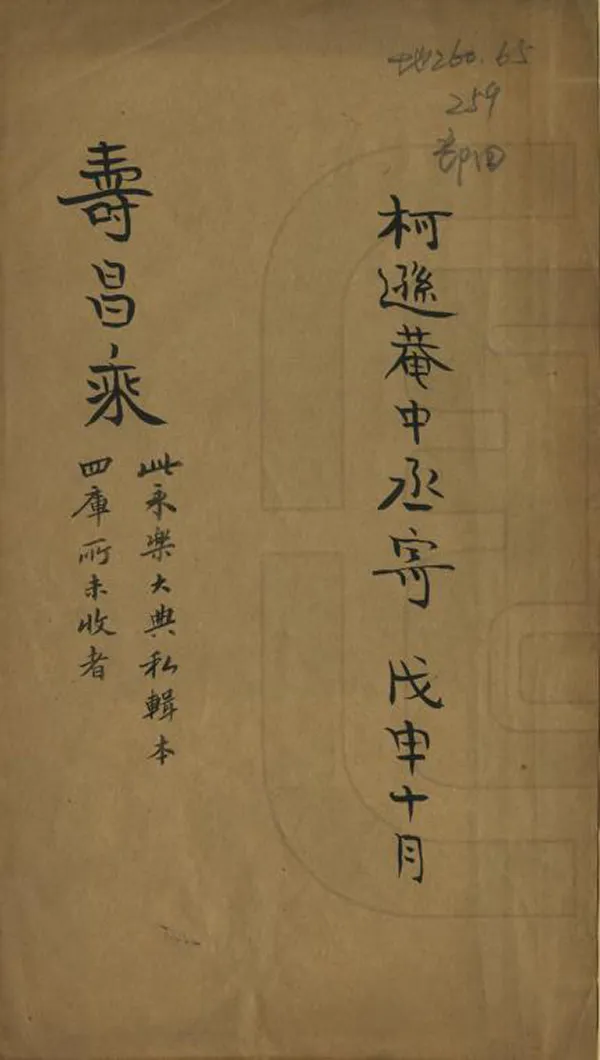 地260.65
259
部四
柯遜菴中丞寄 戊申十月
壽昌乘
此永樂大典私輯本
四庫所未收者